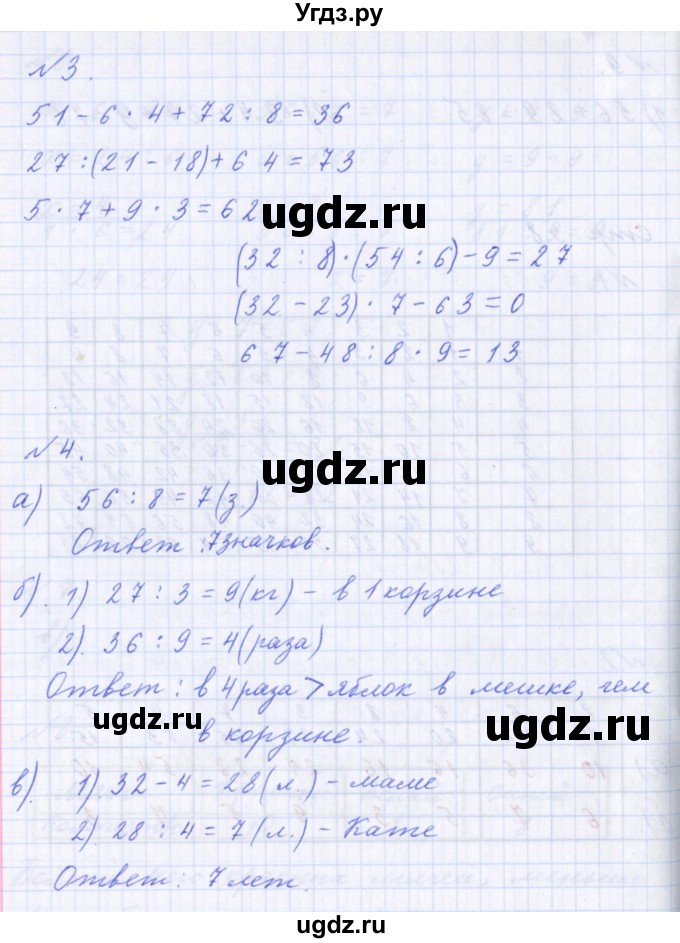 Угдз.ру
№3.
51 - 6 · 4 + 72 : 8 = 36
27 : (21 - 18) + 6 4 = 73
5 · 7 + 9 · 3 = 62
ugdz.ru
ugdz.ru
(32 : 8) · (54 : 6) - 9 = 27
(32 - 23) · 7 - 63 = 0
67 - 48 : 8 · 9 = 13
№4.
ugdz.ru
ugdz.ru
а) 56 : 8 = 7 (з.)
Ответ : 7 значков.
б). 1) 27 : 3 = 9 (кг) - в 1 корзине
2). 36 : 9 = 4 (раза)
Ответ : в 4 раза > яблок в мешке, чем
в корзине.
ugdz.ru
ugdz.ru
в). 1) 32 - 4 = 28 (л.) - маме
2) 28 : 4 = 7 (л.) - Кате
Ответ : 7 лет.
ugdz.ru